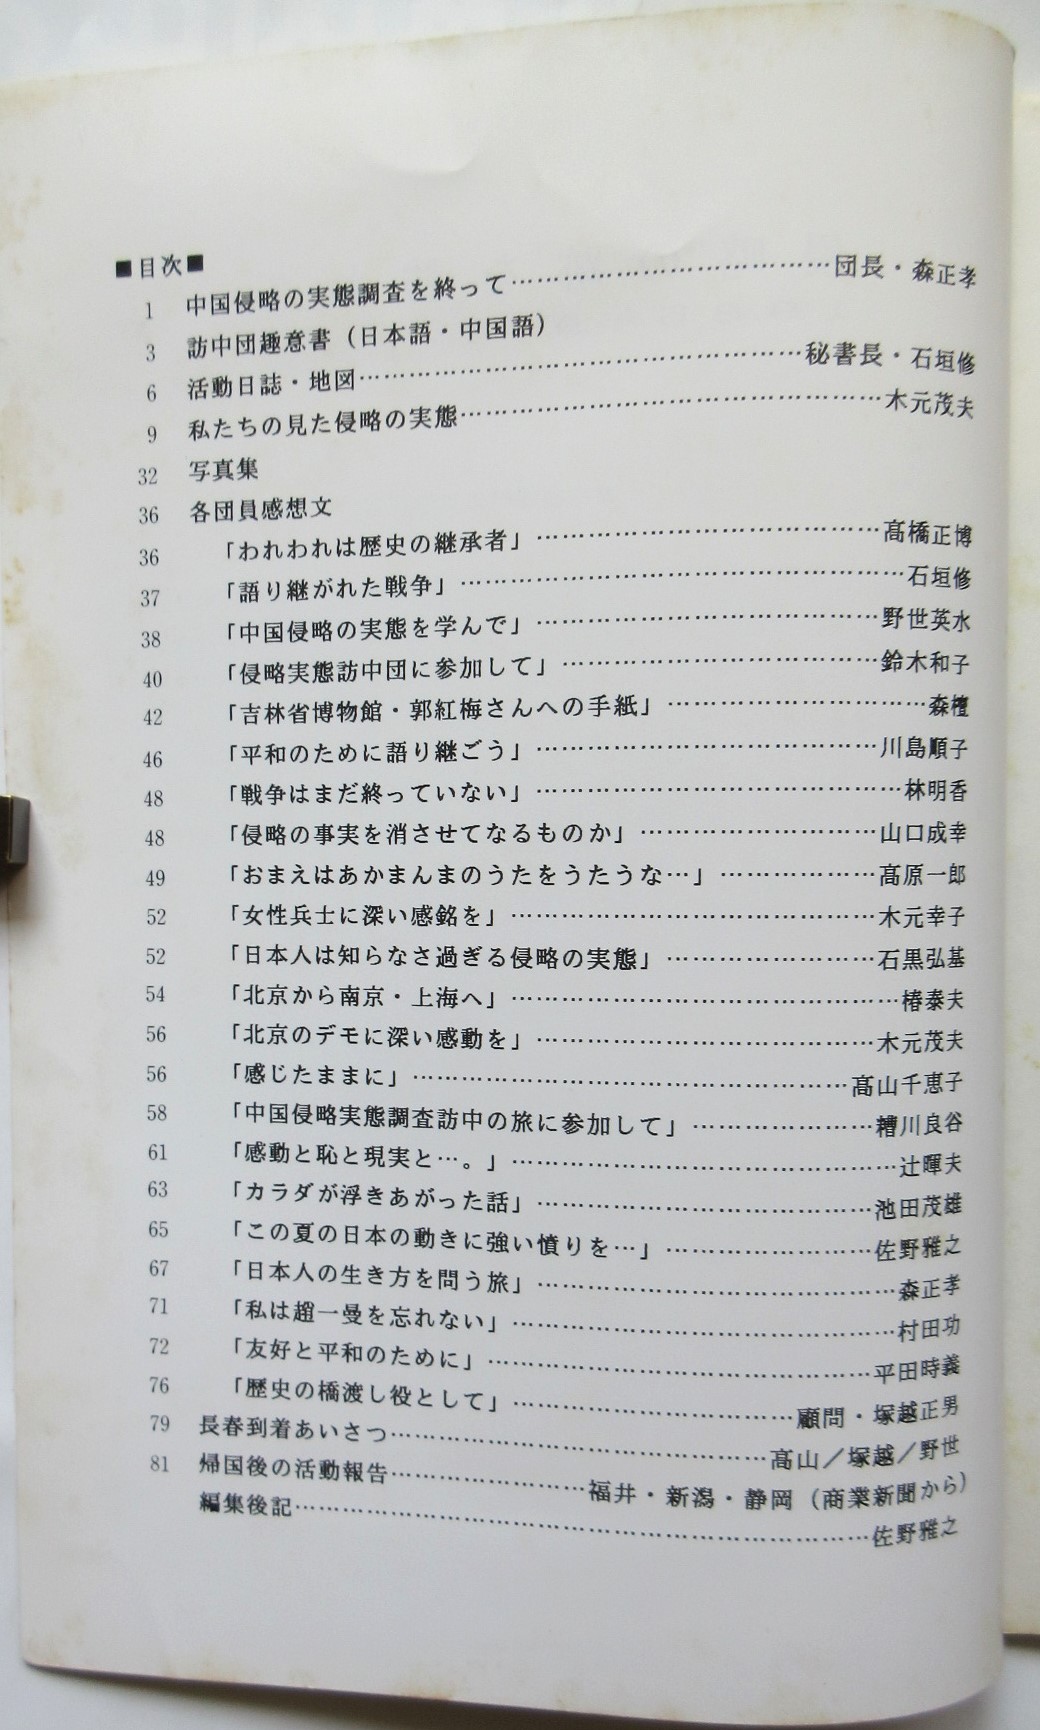 ■目次■
1 中国侵略の実態調査を終って…………………………………団長・森正孝
3 訪中団趣意書（日本語・中国語）
6 活動日誌・地図………………………………………………秘書長・石垣修
9 私たちの見た侵略の実態………………………………………………木元茂夫
32 写真集
36 各団員感想文
36 「われわれは歴史の継承者」……………………………………高橋正博
37 「語り継がれた戦争」………………………………………………石垣修
38 「中国侵略の実態を学んで」……………………………………野世英水
40 「侵略実態訪中団に参加して」…………………………………鈴木和子
42 「吉林省博物館・郭紅梅さんへの手紙」……………………………森檀
46 「平和のために語り継ごう」……………………………………川島順子
48 「戦争はまだ終っていない」………………………………………林明香
48 「侵略の事実を消させてなるものか」…………………………山口成幸
49 「おまえはあかまんまのうたをうたうな…」………………高原一郎
52 「女性兵士に深い感銘を」………………………………………木元幸子
52 「日本人は知らなさ過ぎる侵略の実態」………………………石黒弘基
54 「北京から南京・上海へ」…………………………………………椿泰夫
56 「北京のデモに深い感動を」……………………………………木元茂夫
56 「感じたままに」………………………………………………高山千恵子
58 「中国侵略実態調査訪中の旅に参加して」……………………糟川良谷
61 「感動と恥と現実と…。」…………………………………………辻暉夫
63 「カラダが浮きあがった話」……………………………………池田茂雄
65 「この夏の日本の動きに強い憤りを…」………………………佐野雅之
67 「日本人の生き方を問う旅」………………………………………森正孝
71 「私は趙一曼を忘れない」…………………………………………村田功
72 「友好と平和のために」…………………………………………平田時義
76 「歴史の橋渡し役として」………………………………顧問・塚越正男
79 長春到着あいさつ…………………………………………高山／塚越／野世
81 帰国後の活動報告……………………福井・新潟・静岡（商業新聞から）
編集後記………………………………………………………………佐野雅之